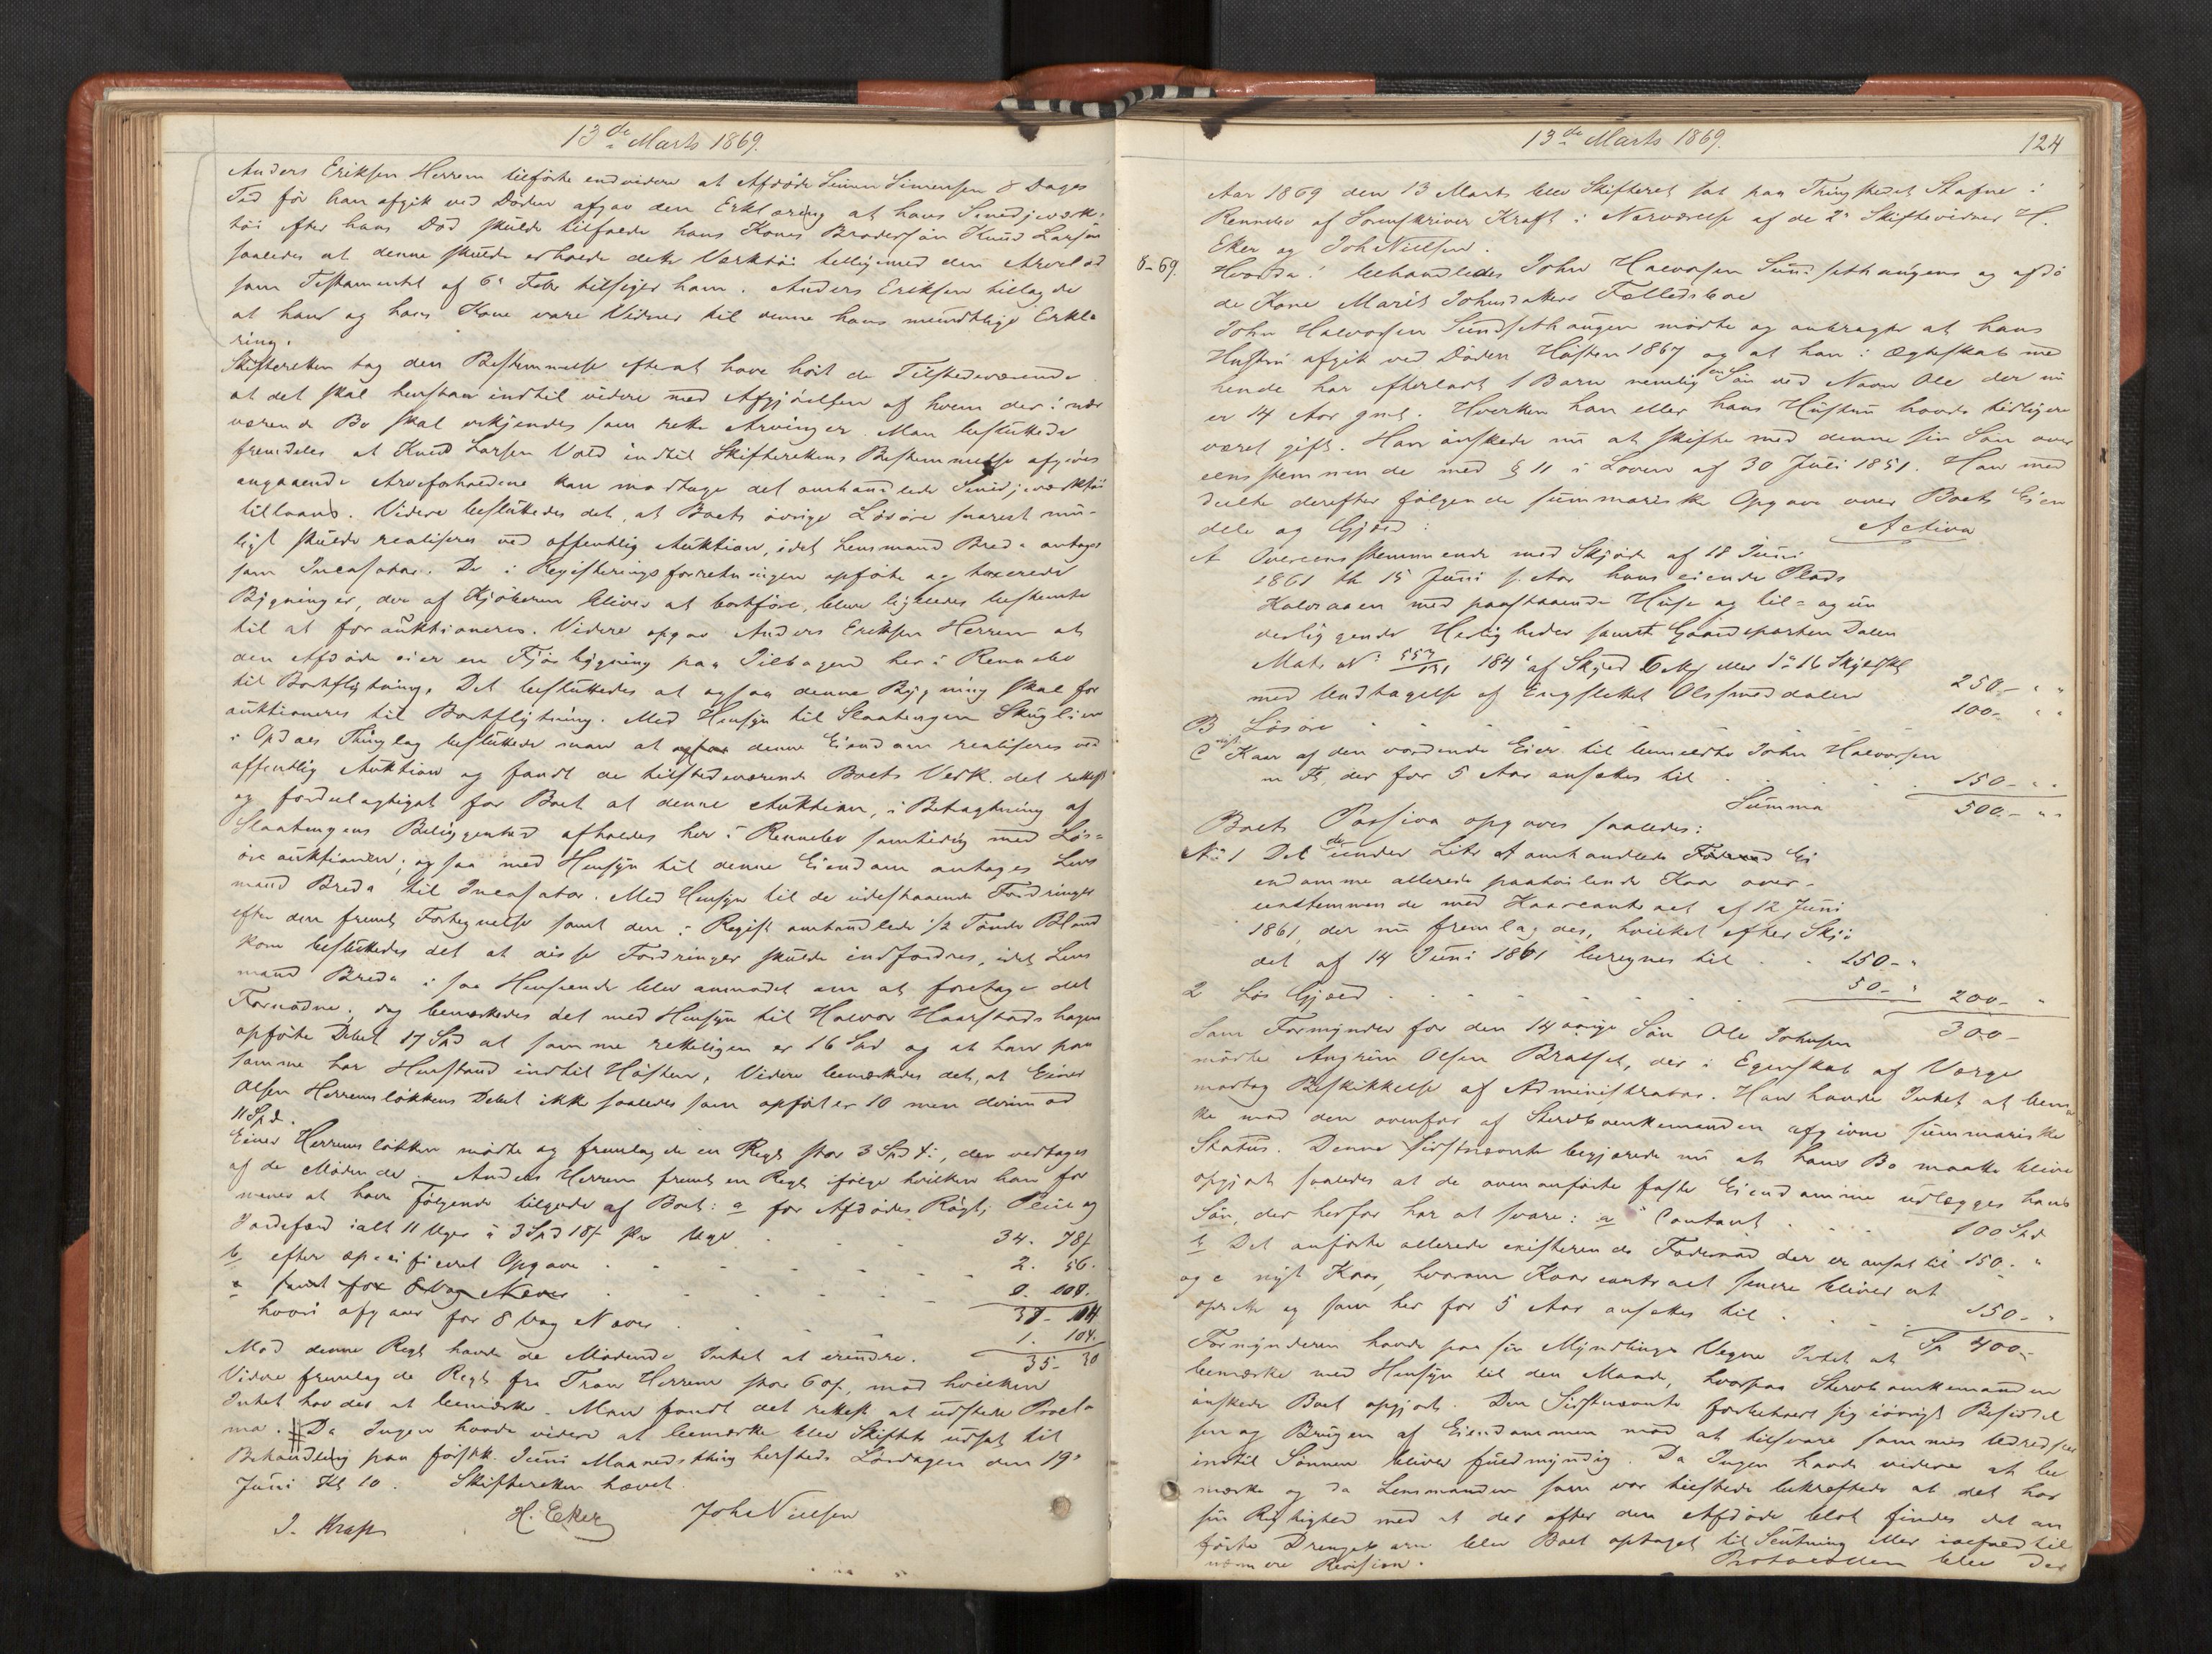 13de Marts 1869.
Anders Eriksen Herrem tilførte endvidere at Afdøde Simen Simensen 8 Dages
Tid før han afgik ved Døden afgav den Erklæring at hans Smedjeværk-
tøi efter hans Død skulde tilfalde hans Kones Brodersøn Knud Larsen
saaledes at denne skulde erholde dette Værktøi tilligemed den Arvelod
som Testamentet af 6te Febr tilsiger ham. Anders Eriksen tillagde
at han og hans Kone vare Vidner til denne hans mundtlige Erklæ
ring.
Skifteretten tog den Bestemmelse efterat have hørt de Tilstedeværende
at det skal henstaa indtil videre med Afgjørelsen af hvem der i nær
værende Bo skal erkjendes som rette Arvinger. Man besluttede
fremdeles at Knud Larsen Vold indtil Skifterettens Bestemmelse afgives
angaaende Arveforholdene kan modtage det omhandlede Smedjeværktøi
tillaans. Videre besluttedes det, at Boets øvrige Løsøre snarest mu-
ligt skulde realiseres ved offentlig Auktion, idet Lensmand Breda antages
som Incasator. De i Registreringsforretningen opførte og taxerede
Bygninger, der af Kjøberen bliver at bortføre, bleve ligeledes bestemte
til at forauktioneres. Videre opgav Anders Eriksen Herrem at
den Afdøde eier en Fjøsbygning paa her i Rennebo
til Bortflytning. Det besluttedes at ogsaa denne Bygning skal for
auktioneres til Bortflytning. Med Hensyn til Slaatengen
i Opdals Thinglag besluttede man at ogsaa denne Eiendom realiseres ved
offentlig Auktion og fandt de tilstedeværende Boets Vedk. det rettest
og fordeelagtigst for Boet at denne Auktion, i Betragtning af
Slaatengens Beliggenhed afholdes her i Rennebo samtidig med Løs-
øre auktionen; ogsaa med Hensyn til denne Eiendom antages Lens
mand Breda til Incasator. Med Hensyn til de udestaaende Fordringer
efter den freml. Fortegnelse samt den i Regist omhandlede 1/2 Tønde Bland
korn besluttedes det at disse Fordringer skulde indfordres, idet Lens
mand Breda i saa Henseende blev anmodet om at foretage det
Fornødne; dog bemærkedes det med Hensyn til Halvor Haarstadshagen
opførte Debet 17 Spd at samme rettelig er 16 Spd og at han paa
samme har Henstand indtil Høsten. Videre bemærkedes det, at Einer
Olsen Herremsløkkens Debet ikke saaledes som opført er 10 men derimod
11 Spd.
Einer Herremsløkken mødte og fremlagde en Regt stor 3 Spd , der vedtages
af de Mødende. Anders Herrem freml. en Regt ifølge hvilken han for
menes at have følgende tilgode af Boet: a for Afdødes Røgt, Pleie og
Jordefærd ialt 11 Uger á 3 Spd 18 pr Uge . . 34. 78
b efter specificeret Opgave . . . . 2. 56.
c samt for 8 Vog Næver . . . . 0. 108.
hvori afgaar for 8 Vog Næver . . . 1. 104.
Mod denne Regt havde de Mødende Intet at erindre. 35- 30
Videre fremlagde Regt fra Tron Herrem stor 60 , mod hvilken
Intet har der at bemærke. Man fandt det rettest at udstede Procla
ma. Da Ingen havde videre at bemærke blev Skiftet udsat til
Behandling paa førstk. Juni Maaneds thing hersteds Lørdagen den 19de
Juni Kl 10. Skifteretten hævet.
J. Kraft H. Eker Joh Nielsen
13de Marts 1869. 124
Aar 1869 den 13 Marts blev Skifteret sat paa Thingstedet Stafne i
Rennebo af Sorenskriver Kraft i Nærværelse af de 2de Skiftevidner H.
Eker og Joh Nielsen.
8-69. Hvorda: behandledes John Halvorsen Sundsethaugens og afdø
de Kone Marit Johnsdatters Fællesbo
John Halvorsen Sundsethaugen mødte og anbragte at hans
Hustru afgik ved Døden Høsten 1867 og at han i Ægteskab med
hende har efterladt 1 Barn nemlig en Søn ved Navn Ole der nu
er 14 Aar gml. Hverken han eller hans Hustru havde tidligere
været gift. Han ønskede nu at skifte med denne sin Søn over
eensstemmende med § 11 i Loven af 30 Juli 1851. Han med
deelte derefter følgende summariske Opgave over Boets Eien
dele og Gjæld: Activa
A Overeensstemmende med Skjøde af 18 Juni
1861 th 15 Juni s. Aar hans eiende Plads
med paastaaende Huse og til- og un
derliggende Herligheder samt Gaardeparten Dalen
Matr No af Skyld
med Undtagelse af Engslettet 250- " "
B Løsøre - - - - - - 100- " "
C Kaar af den vordende Eier til bemeldte John Halvorsen
der for 5 Aar ansættes til . . . 150- " "
Summa 500- " "
Boets Passiva opgaves saaledes:
No 1 Det de under Litr A omhandlede Ei
endomme allerede paahvilende Kaar over-
eensstemmende med Kaarcontract af 12 Juni
1861, der nu fremlagdes, hvilket efter Skjø
det af 14 Juni 1861 beregnes til . . 150- "
2 Løs Gjæld . . . . . . 50- " 200- "
300-
Som Formynder for den 14 aarige Søn Ole Johnsen
mødte Olsen Bratset, der i Egenskab af Værge
modtog Beskikkelse af Administrator. Han havde Intet at bemær
ke mod den ovenfor af Sterbboenkemanden afgivne summariske
Status. Denne Sidstnævnte begjærede nu at hans Bo maatte blive
opgjort saaledes at de ovenanførte faste Eiendomme udlægges hans
Søn, der herfor har at svare: a Contant . . . 100 Spd
b Det anførte allerede existerende Føderaad der er ansat til 150. "
og c nyt Kaar, hvorom Kaarcontract senere bliver at
oprette og som her for 5 Aar ansættes til . . . . 150- "
Sp 400-
Formynderen havde paa sin Myndlings Vegne Intet at
bemærke med Hensyn til den Maade, hvorpaa Sterbboenkemanden
ønskede Boet opgjort. Den Sidstnævnte forbeholdt sig iøvrigt Besiddel
sen og Brugen af Eiendommen mod at tilsvare sammes Udredsler
indtil Sønnen bliver fuldmyndig. Da Ingen havde videre at be
mærke og da Lensmanden som var tilstede bekræftede at det har
sin Rigtighed med at der efter den Afdøde blot findes det an
førte Drengebarn blev Boet optaget til Slutning eller ialfald til
nærmere Revision. Protocollen blev der